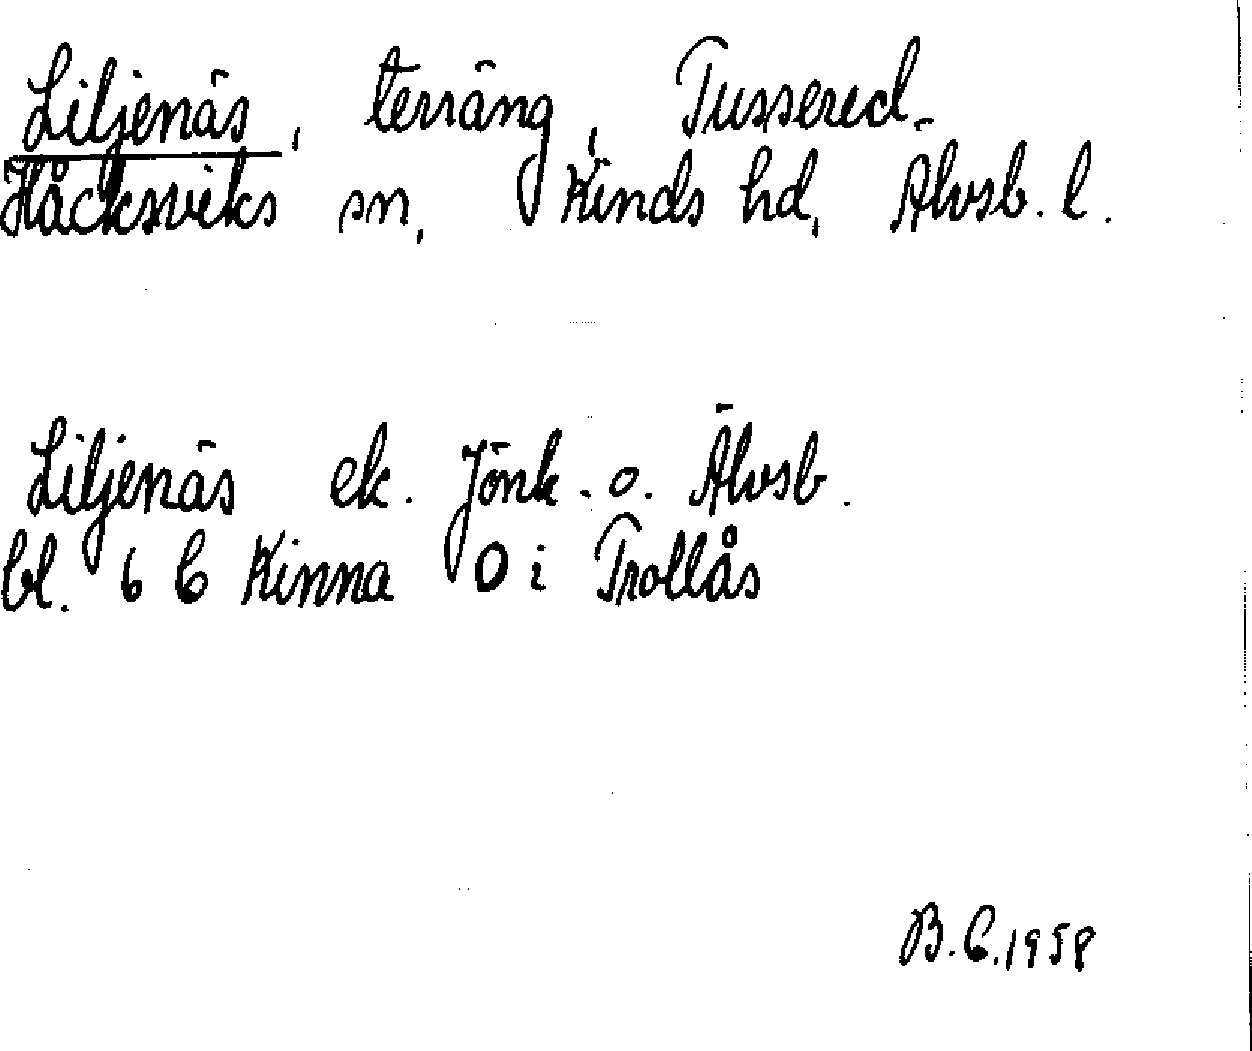 Liljenäs, terräng, Tussered.
Håcksviks sn, Kinds hd, Älvsb. l.
Liljenäs ek. Jönk. o. Älvsb.
bl. 6 C Kinna O i Trollås
B.C. 1958